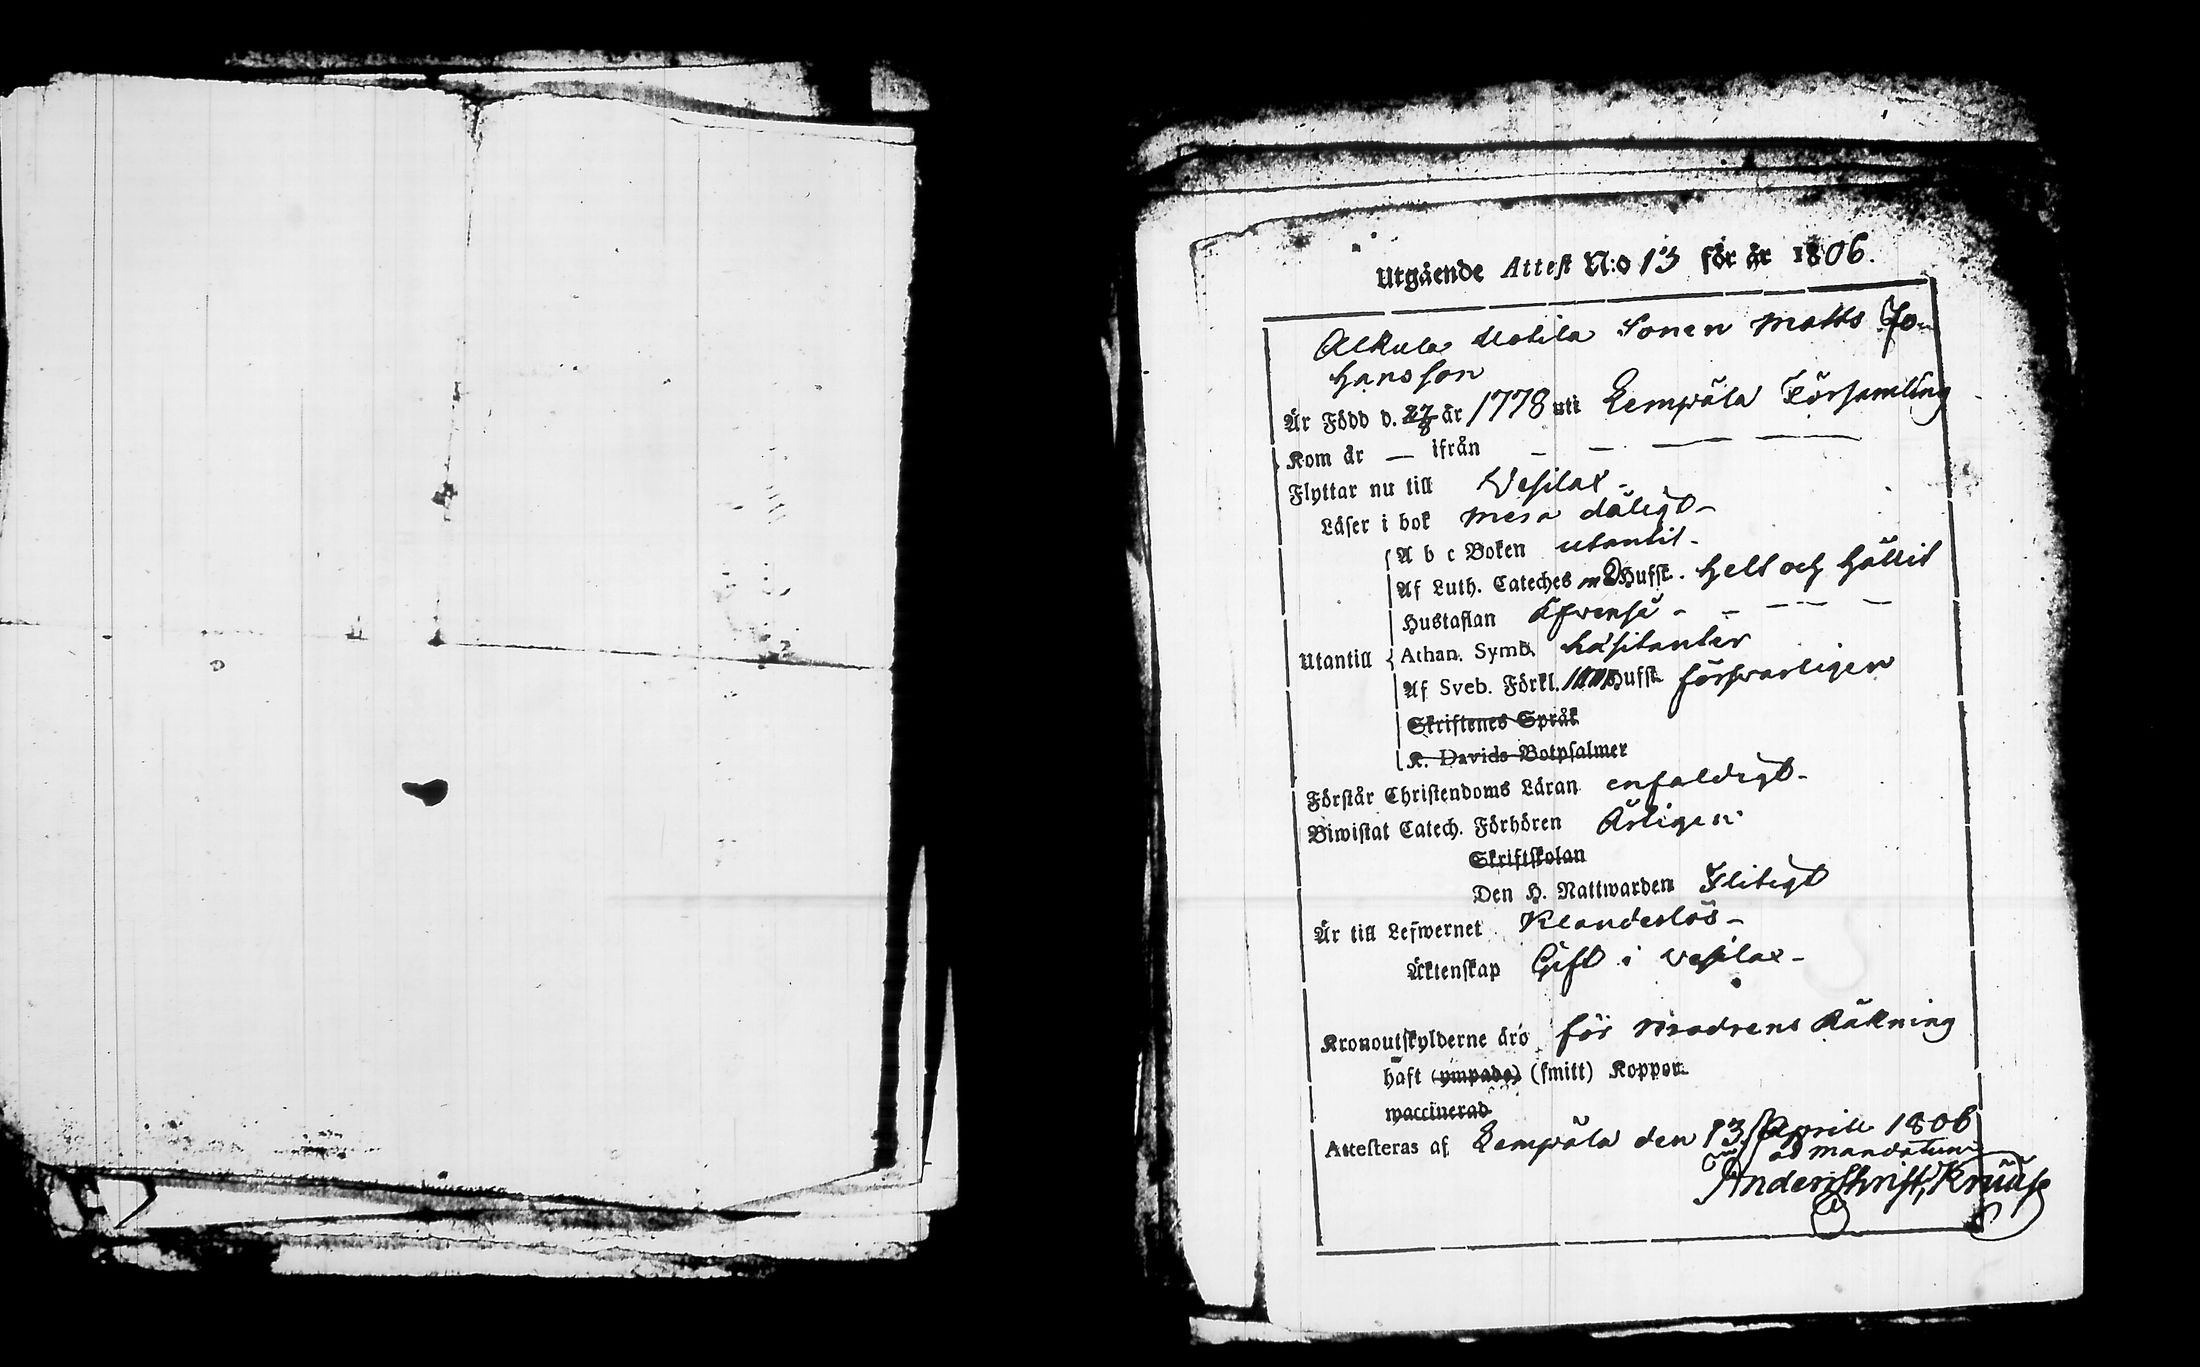 Utgående Attest N:o 13 för år 1806.
Alkula Uotila Sonen Matts Jo-
hansson
Är Född d. 27/8 år 1778 uti Lempäla Församling
Kom år — ifrån — — — —
Flyttar nu till Vesilax -
Läser i bok mera dåligt -
A b c Boken utantil -
Af Luth. Cateches m Hufst. helt och hållit
Hustaflan - - - - -
Utantill Athan. Symb. häsitanter
Af Sveb. Förkl. Hufst. försvarligen
Skriftenes Språk
K. Davids Botpsalmer
Förstår Christendoms Läran enfaldigt -
Biwistat Catech. Förhören Årligen
Skriftskolan
Den H. Nattwarden Flitigt
Är till Lefwernet Klanderlös -
Äktenskap Gift i Vesilax -
Kronoutskylderne äro för Modrens Räkning
haft (ympade) (smitt) Koppor.
waccinerad
Attesteras af Lempäla den 13 Aprill 1806
ad mandatum